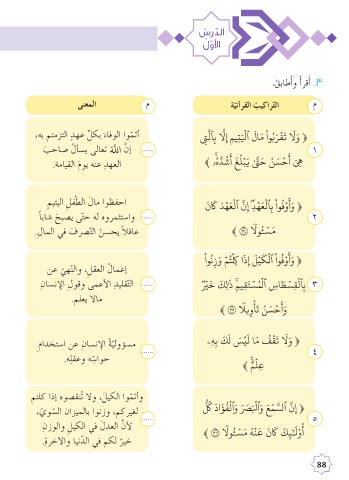 الدّرسُ
الأوّل
٣. أقرأُ وأطابقُ:
م
التراكيبُ القرآنيّة
م
المعنى
١
﴿ وَلَا تَقْرَبُوا۟ مَالَ ٱلْيَتِيمِ إِلَّا بِٱلَّتِى
هِىَ أَحْسَنُ حَتَّىٰ يَبْلُغَ أَشُدَّهُۥ ﴾
......
أتمّوا الوفاءَ بكلِّ عهدٍ التزمتم به،
إنَّ اللّٰهَ تعالى يسألُ صاحبَ
العهدِ عنه يومَ القيامة.
٢
﴿ وَأَوْفُوا۟ بِٱلْعَهْدِ ۖ إِنَّ ٱلْعَهْدَ كَانَ
مَسْـُٔولًا ﴾
......
احفظوا مالَ الطّفلِ اليتيمِ
واستثمروه له حتّى يصبحَ شابّاً
عاقلاً يحسنُ التّصرفَ في المالِ.
٣
﴿ وَأَوْفُوا۟ ٱلْكَيْلَ إِذَا كِلْتُمْ وَزِنُوا۟
بِٱلْقِسْطَاسِ ٱلْمُسْتَقِيمِ ۚ ذَٰلِكَ خَيْرٌ
وَأَحْسَنُ تَأْوِيلًا ﴾
......
إعمالُ العقلِ، والنّهيُ عن
التّقليدِ الأعمى وقولِ الإنسانِ
مالا يعلم.
٤
﴿ وَلَا تَقْفُ مَا لَيْسَ لَكَ بِهِۦ
عِلْمٌ ۚ ﴾
......
مسؤوليّةُ الإنسانِ عن استخدامِ
حواسِّه وعقلِه.
٥
﴿ إِنَّ ٱلسَّمْعَ وَٱلْبَصَرَ وَٱلْفُؤَادَ كُلُّ
أُو۟لَـٰٓئِكَ كَانَ عَنْهُ مَسْـُٔولًا ﴾
......
وأتمّوا الكيلَ، ولا تُنقصوه إذا كلتم
لغيركم، وزنوا بالميزانِ السويّ،
لأنَّ العدلَ في الكيلِ والوزنِ
خيرٌ لكم في الدّنيا والآخرةِ.
88